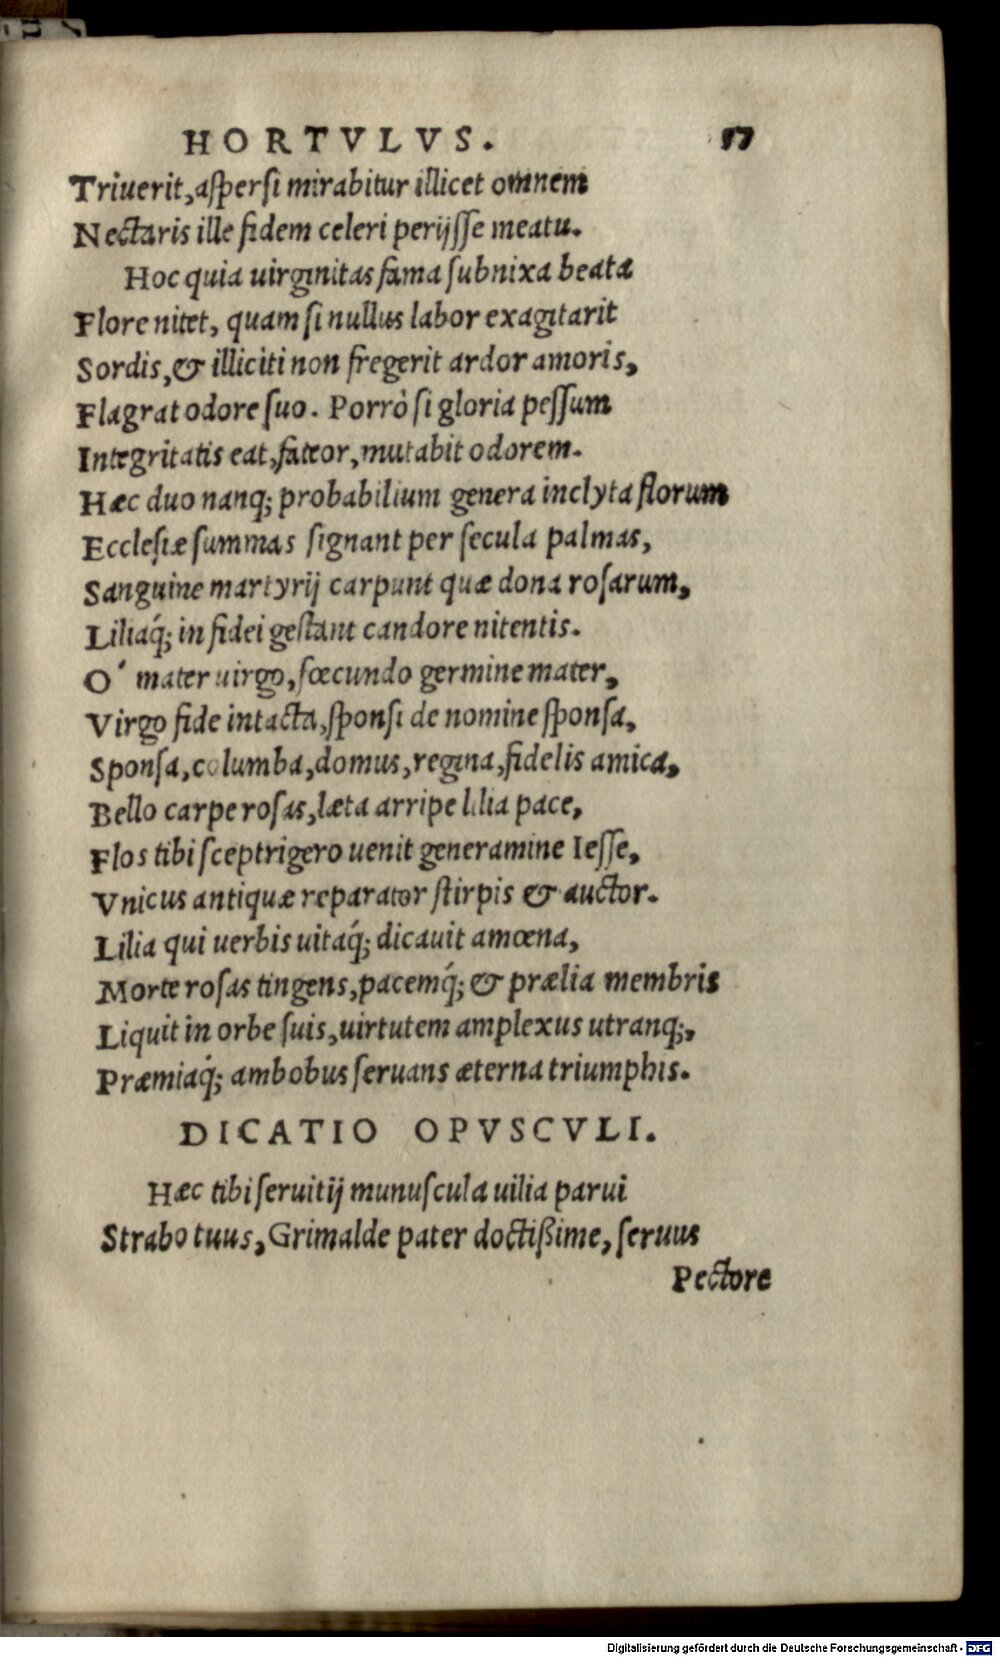 HORTVLVS. 17
Triuerit, aſperſi mirabitur illicet omnem
Nectaris ille fidem celeri perijſſe meatu.
Hoc quia uirginitas fama ſubnixa beata
Flore nitet, quam ſi nullus labor exagitarit
Sordis, & illiciti non fregerit ardor amoris,
Flagrat odore ſuo. Porrò ſi gloria peſſum
Integritatis eat, fateor, mutabit odorem.
Hæc duo nanq; probabilium genera inclyta florum
Eccleſiæ ſummas ſignant per ſecula palmas,
Sanguine martyrij carpunt quæ dona roſarum,
Liliaq́; in fidei geſtant candore nitentis.
O' mater uirgo, fœcundo germine mater,
Virgo fide intacta, ſponſi de nomine ſponſa,
Sponſa, columba, domus, regina, fidelis amica,
Bello carpe roſas, læta arripe lilia pace,
Flos tibi ſceptrigero uenit generamine Ieſſe,
Vnicus antiquæ reparator ſtirpis & auctor.
Lilia qui uerbis uitaq́; dicauit amœna,
Morte roſas tingens, pacemq́; & prælia membris
Liquit in orbe ſuis, uirtutem amplexus utranq;,
Præmiaq́; ambobus ſeruans æterna triumphis.
DICATIO OPVSCVLI.
Hæc tibi ſeruitij munuſcula uilia parui
Strabo tuus, Grimalde pater doctißime, ſeruus
Pectore
Digitalisierung gefördert durch die Deutsche Forschungsgemeinschaft - DFG